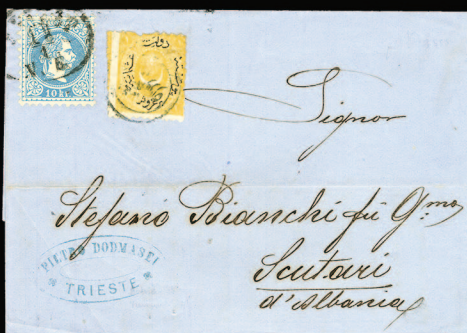 10 KR.
دولت
Signor
Stefano Bianchi fù G.mo
Scutari
d'Albania
PIETRO DODMASEI
TRIESTE